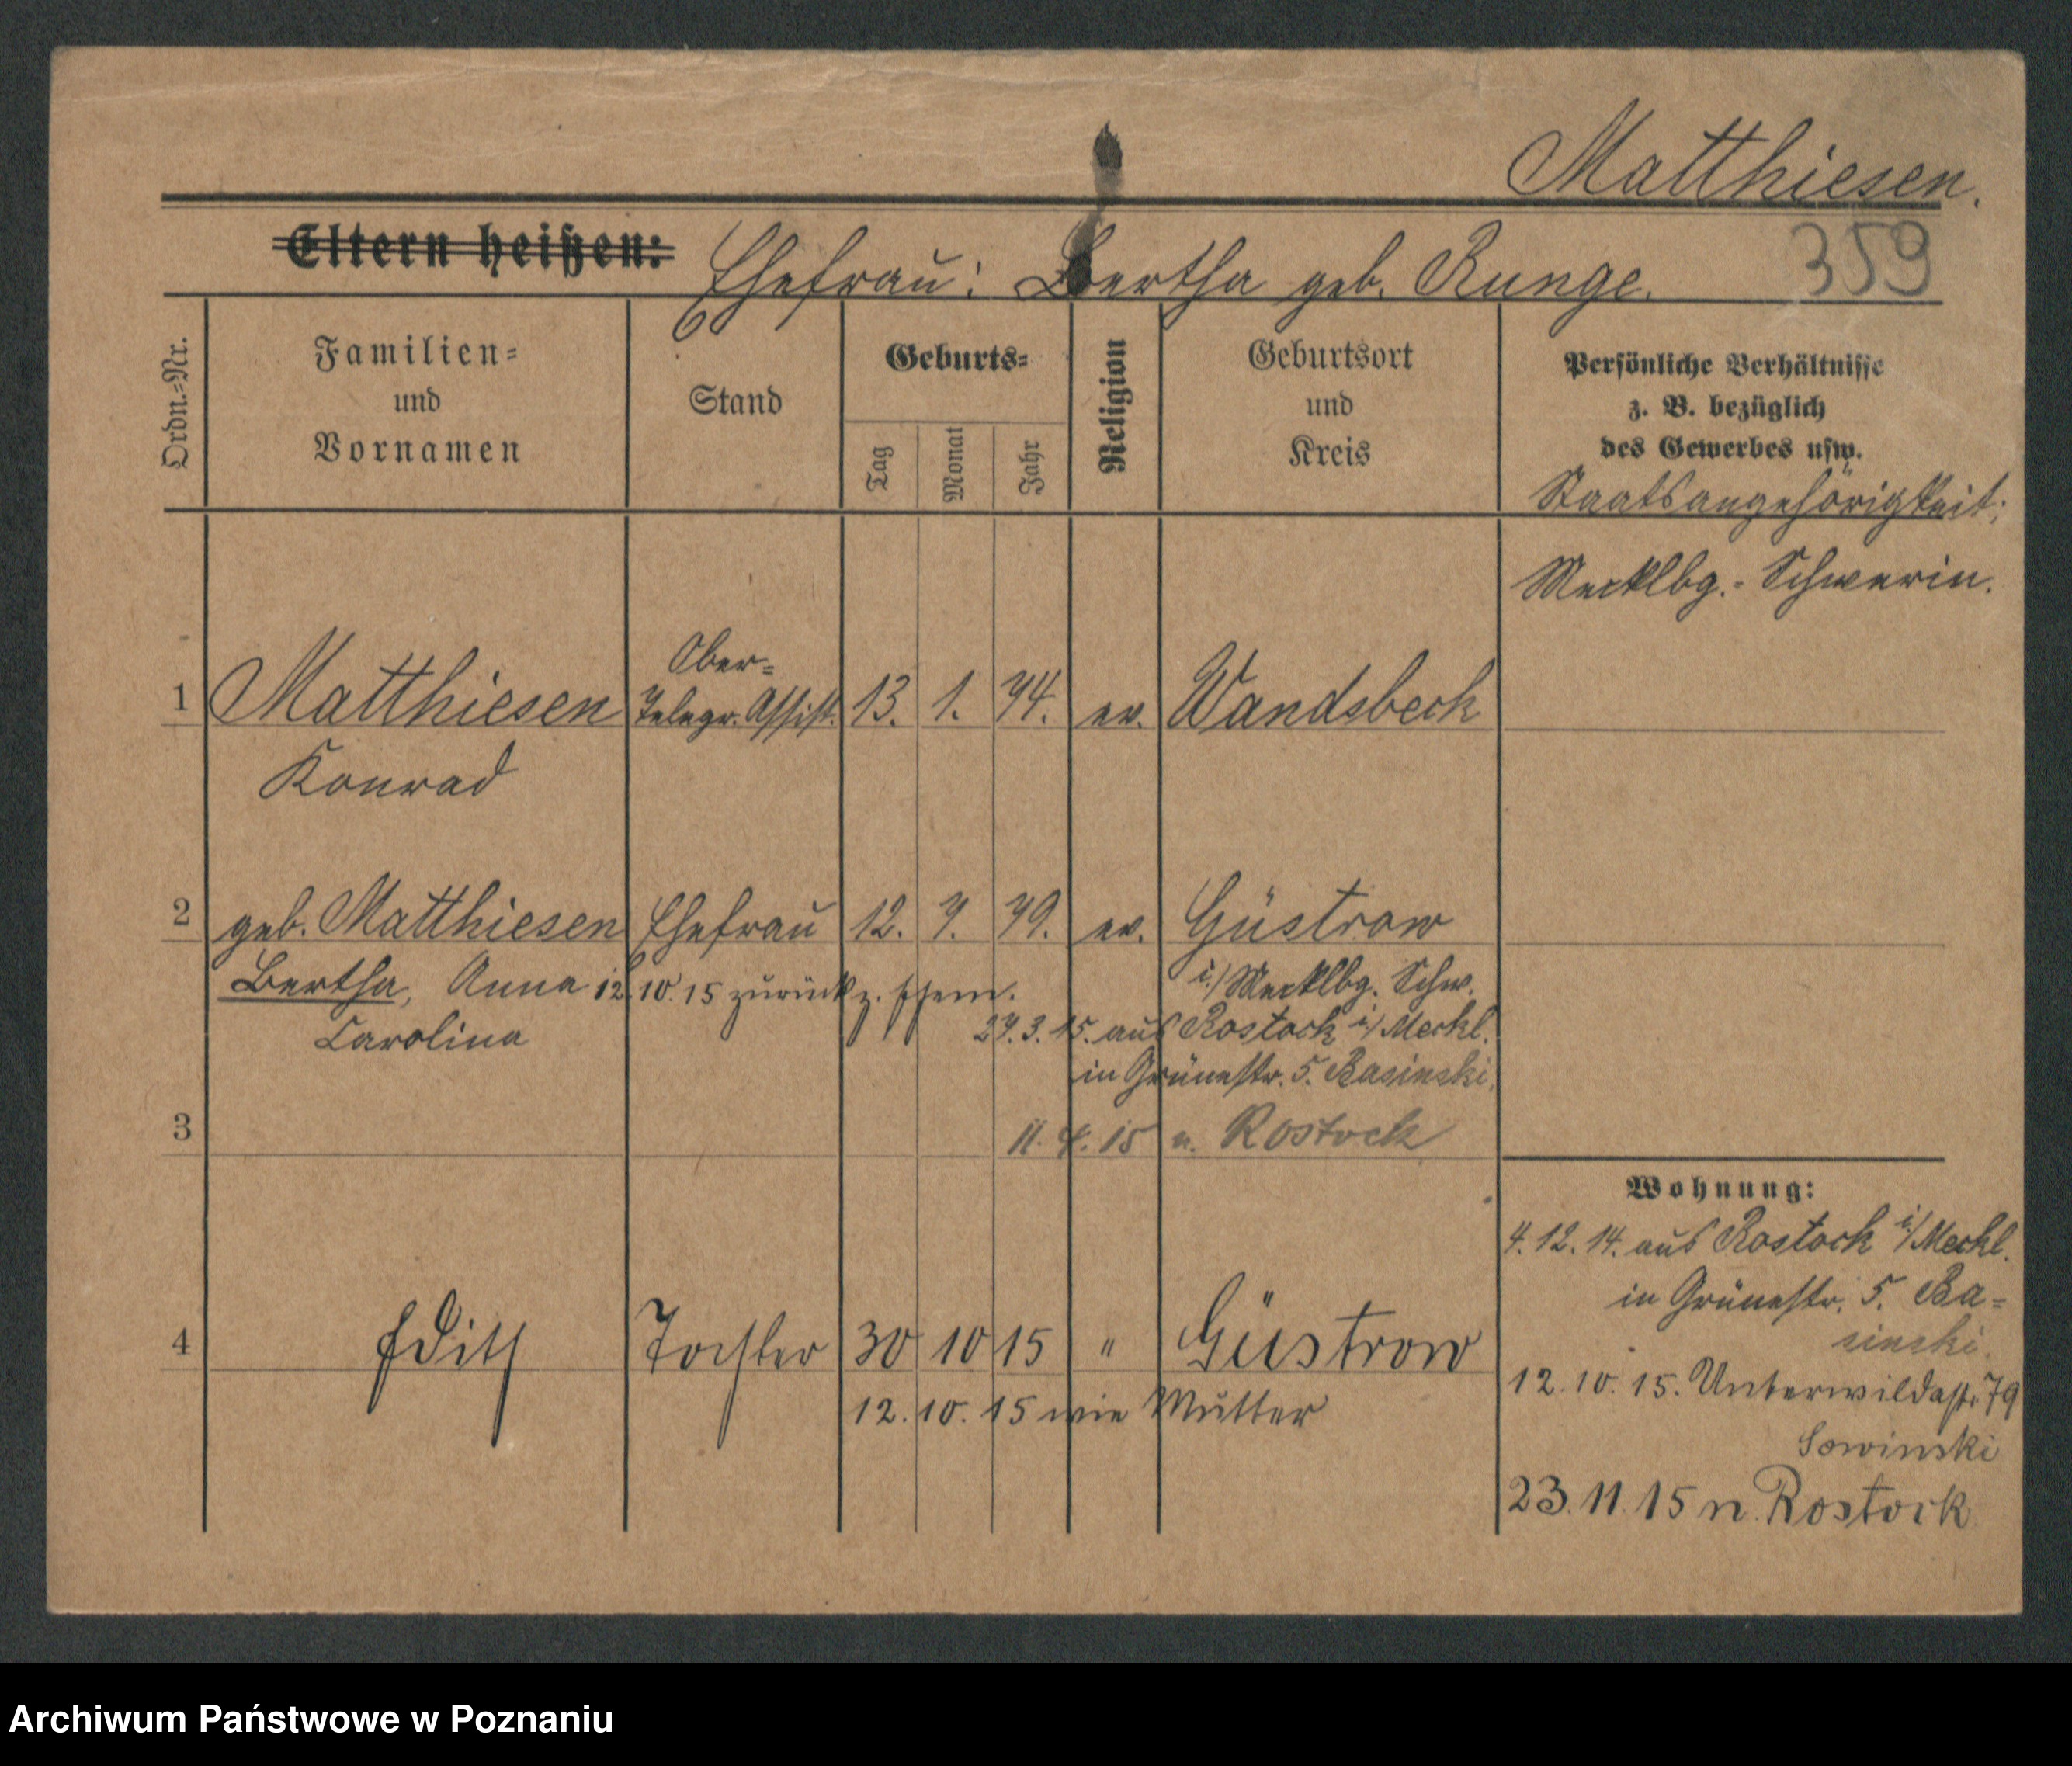 Matthiesen.
Eltern heißen:
Ehefrau: Bertha geb. Runge.
359
Ordn.-Nr.
Familien-
und
Vornamen
Stand
Geburts-
Tag
Monat
Jahr
Religion
Geburtsort
und
Kreis
Persönliche Verhältnisse
z. B. bezüglich
des Gewerbes usw.
Staatsangehörigkeit:
Mecklbg.- Schwerin.
Ober-
1 Matthiesen Telegr. Assist. 13. 1. 74. ev. Wandsbeck
Konrad
2 geb. Matthiesen Ehefrau 12. 7. 79. ev. Güstrow
Bertha, Anna
i/Mecklbg. Schw.
12.10.15 zurück z. Ehem.
Carolina
27.3.15. aus Rostock i/Meckl.
in Grünestr. 5. Basinski.
3
11. 8. 15 n. Rostock
Wohnung:
4.12.14. aus Rostock i/Meckl.
in Grünestr. 5. Ba-
sinski.
4 Edith Tochter 30 10 15 " Güstrow
12.10.15 wie Mutter
12.10.15. Unterwildastr. 79
Sowinski
23.11.15 n. Rostock
Archiwum Państwowe w Poznaniu